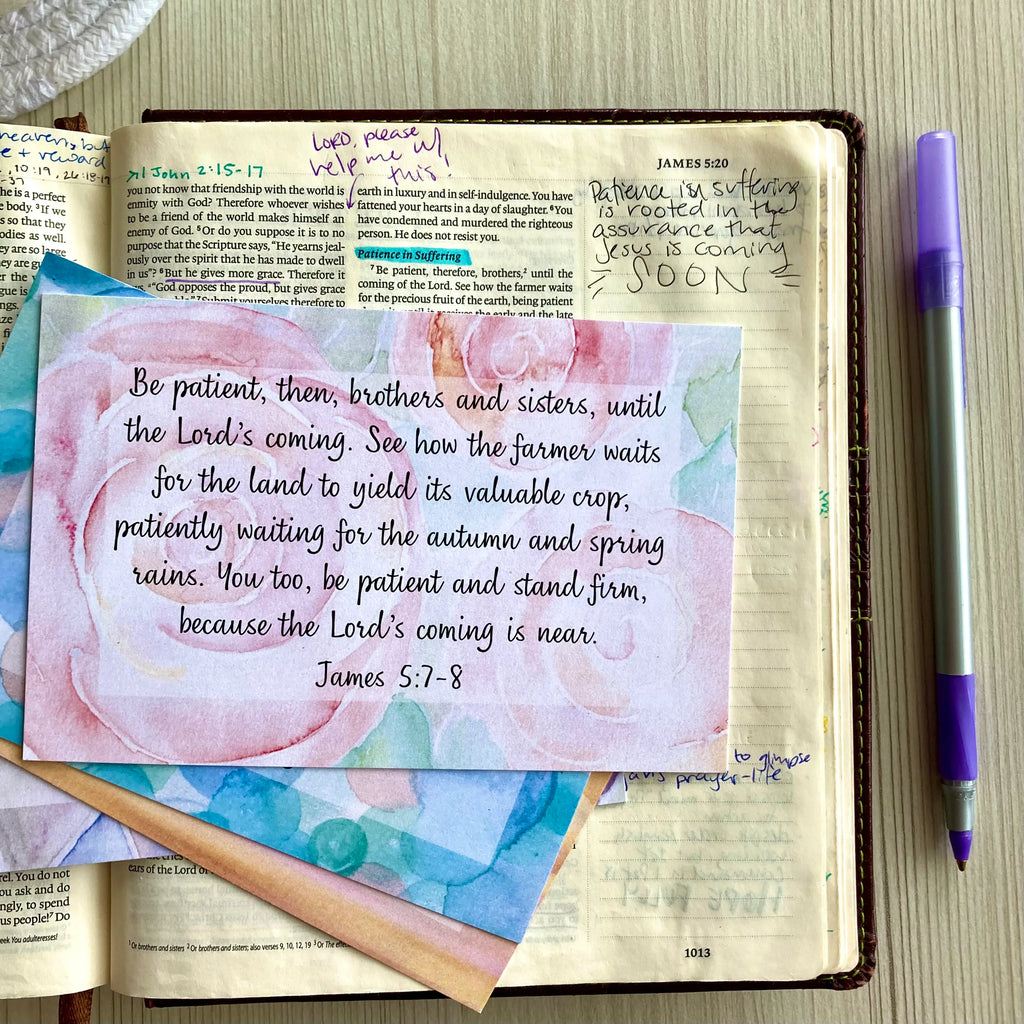 heaven, but
e + reward
10:19, 26:18-19
-37
he is a perfect
e body. ³If we
s so that they
odies as well.
ey are so large
they are gu
>1 John 2:15-17
you not know that friendship with the world is
enmity with God? Therefore whoever wishes
to be a friend of the world makes himself an
enemy of God. ⁵Or do you suppose it is to no
purpose that the Scripture says, “He yearns jeal-
ously over the spirit that he has made to dwell
in us”? ⁶But he gives more grace. Therefore it
“God opposes the proud, but gives grace
⁷Submit yourselves therefore to
LORD, please
help me w/
this!
earth in luxury and in self-indulgence. You have
fattened your hearts in a day of slaughter. ⁶You
have condemned and murdered the righteous
person. He does not resist you.
Patience in Suffering
⁷Be patient, therefore, brothers,² until the
coming of the Lord. See how the farmer waits
for the precious fruit of the earth, being patient
about it, until it receives the early and the late
JAMES 5:20
Patience in suffering
is rooted in the
assurance that
Jesus is coming
SOON
Be patient, then, brothers and sisters, until
the Lord’s coming. See how the farmer waits
for the land to yield its valuable crop,
patiently waiting for the autumn and spring
rains. You too, be patient and stand firm,
because the Lord’s coming is near.
James 5:7-8
to glimpse
prayer-life
rel. You do not
ou ask and do
ngly, to spend
us people!⁷ Do
eek You adulteresses!
ears of the Lord of
¹ Or brothers and sisters ² Or brothers and sisters; also verses 9, 10, 12, 19 ³ Or The effe
1013